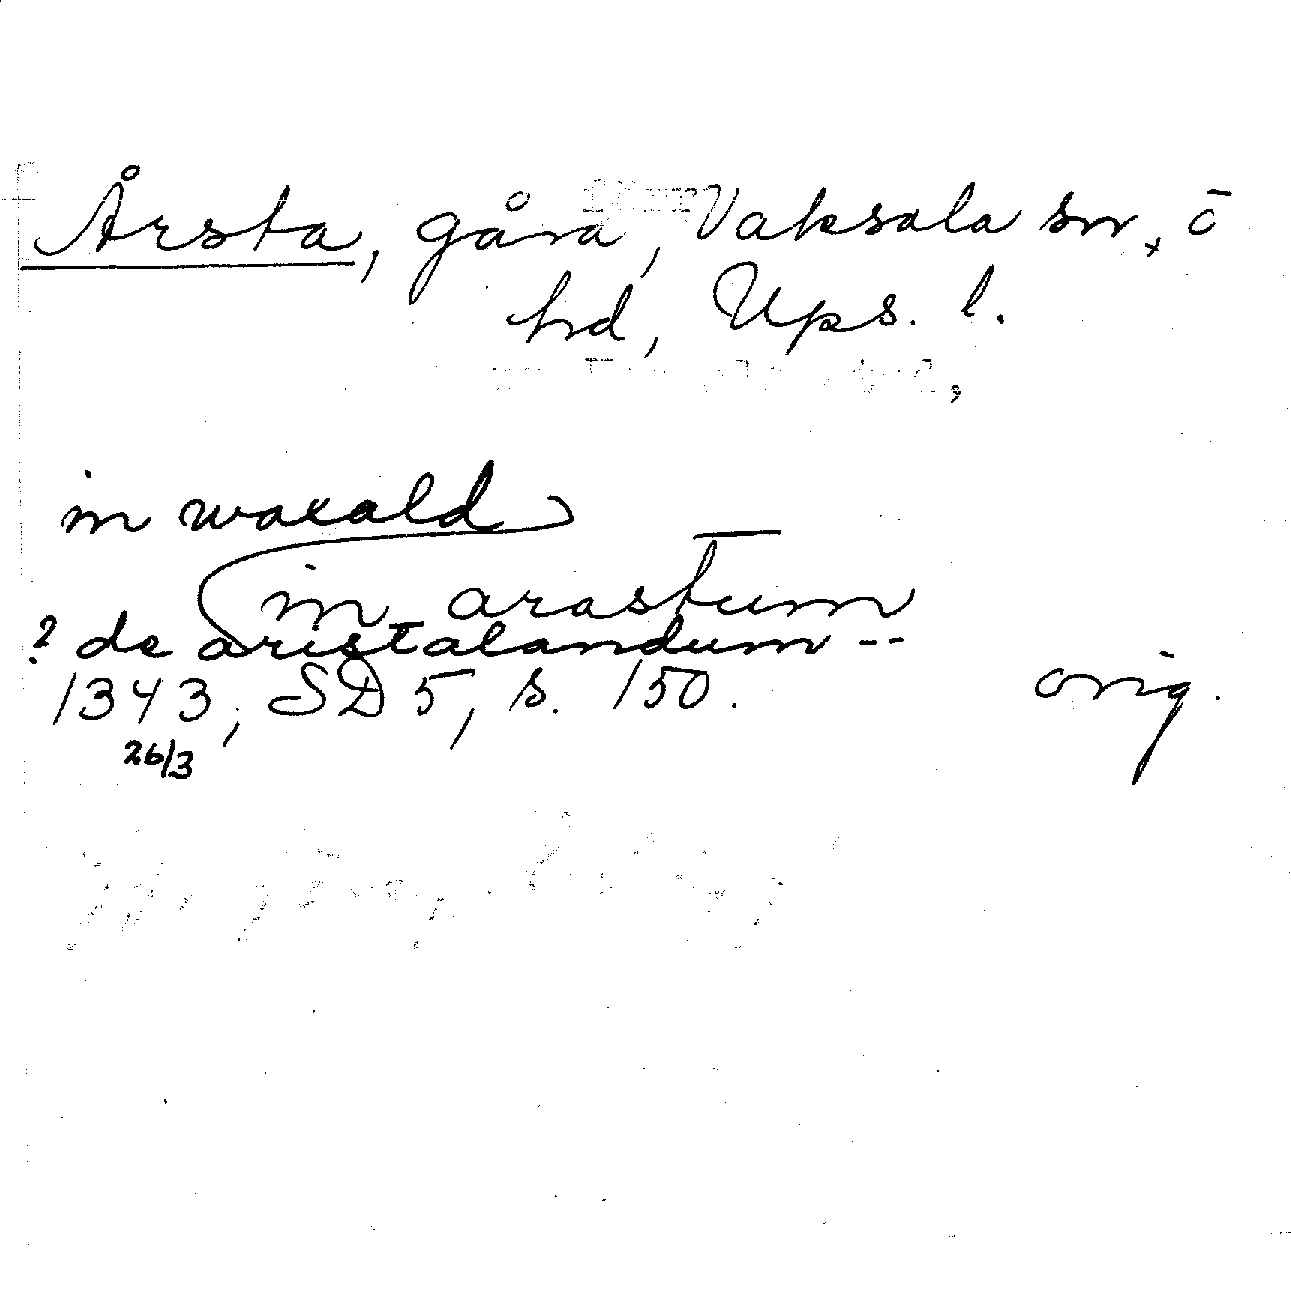 Årsta, gård, Vaksala sn, ō
hd, Ups. l.
in waxald
in arastum
? de aristalandum --
1343, SD 5, s. 150. orig.
26/3